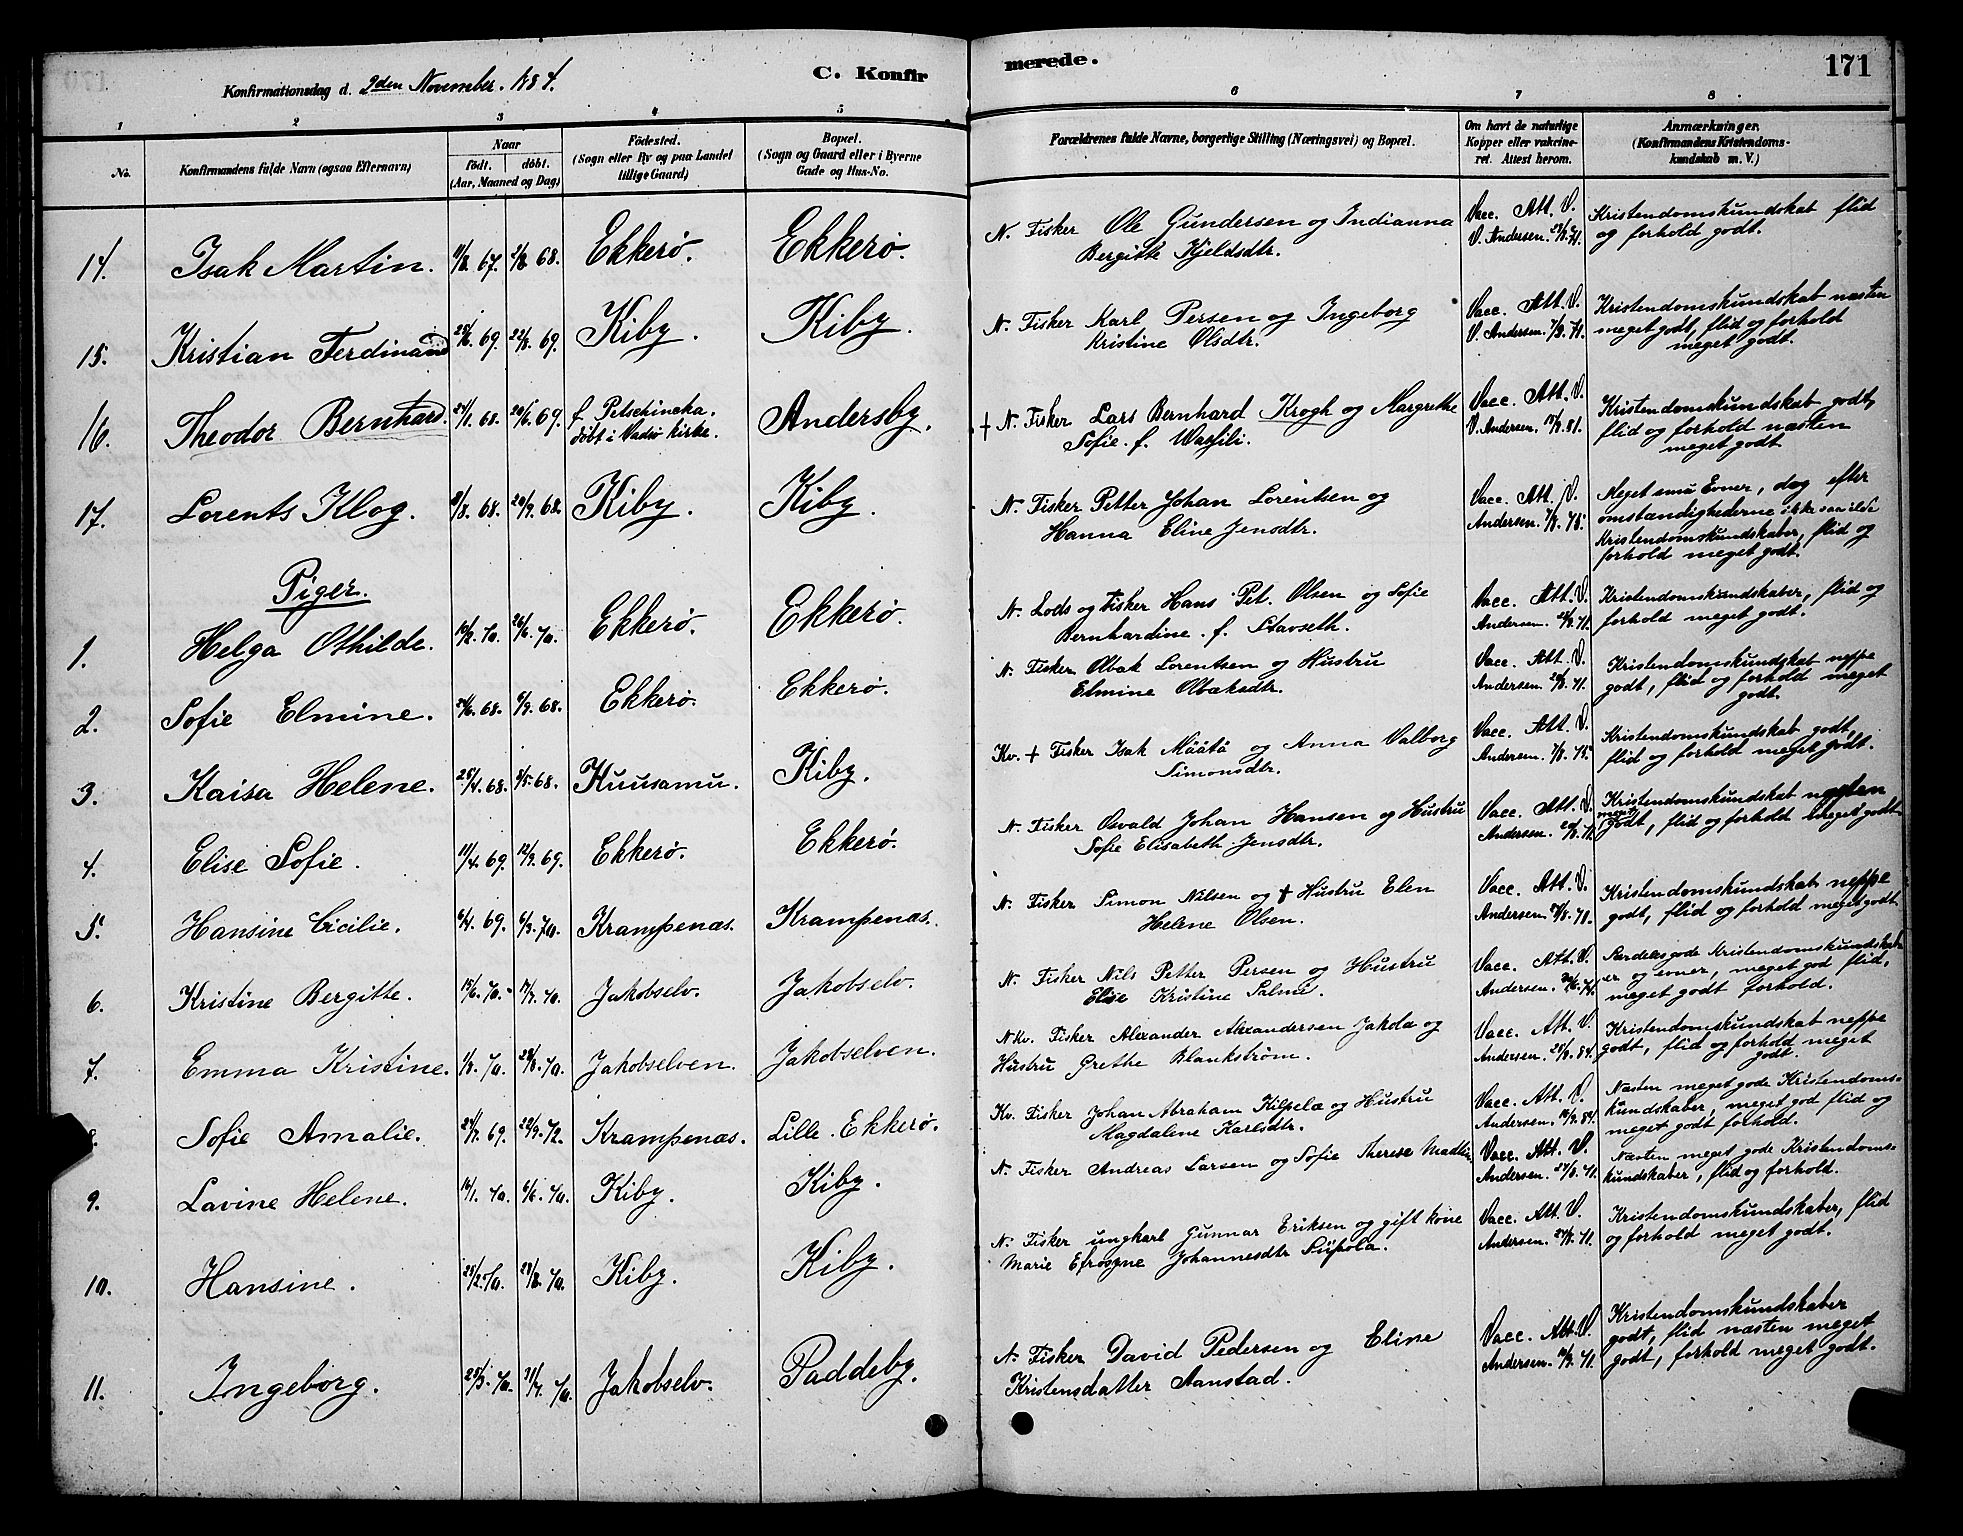 C. Konfirmerede.
171
Konfirmationsdag d. 2den November 1884.
1 2 3 4 5 6 7 8
No.
Konfirmandens fulde Navn (ogsaa Efternavn)
Naar
født. døbt.
(Aar, Maaned og Dag)
Fødested.
(Sogn eller By og paa Landet
tillige Gaard)
Bopæl.
(Sogn og Gaard eller i Byerne
Gade og Hus-No.
Forældrenes fulde Navne, borgerlige Stilling (Næringsvei) og Bopæl.
Om havt de naturlige
Kopper eller vakcine-
ret. Attest herom.
Anmærkninger.
(Konfirmandens Kristendoms-
kundskab m. V.)
14. Isak Martin. 67. 68. Ekkerø. Ekkerø.
N. Fisker Ole Gundersen og Indianna
Bergitte Kjeldsdtr.
Vacc. Att. V.
V. Andersen. 71.
Kristendomskundskab flid
og forhold godt.
15. Kristian Ferdinand 69. 69. Kiby. Kiby.
N. Fisker Karl Persen og Ingeborg
Kristine Olsdtr.
Vacc. Att. V.
V. Andersen.
Kristendomskundskab næsten
meget godt, flid og forhold
meget godt.
16. Theodor Bernhard. 24/1 68. 20/6 69. f. Petschincka. Andersby.
døbt i Vadsø kirke.
† N. Fisker Lars Bernhard Krogh og Margrethe
Sofie f. Wasfili.
Vacc. Att. V.
V. Andersen. 81.
Kristendomskundskab godt,
flid og forhold næsten
meget godt
17. Lorents Klog. 8/8 68. 20/9 68. Kiby. Kiby.
N. Fisker Petter Johan Lorentsen og
Hanna Eline Jensdtr.
Vacc. Att. V.
Andersen.
Meget små Evner, dog efter
omstændighederne ikke saa ilde
Kristendomskundskaber, flid og
forhold meget godt.
Piger.
1. Helga Othilde. 70. 26/6 70. Ekkerø. Ekkerø.
N. Lods og Fisker Hans Pet. Olsen og Sofie
Bernhardine f. Stavseth.
Vacc. Att. V.
Andersen. 71.
Kristendomskundskaber, flid og
forhold meget godt.
2. Sofie Elmine. 68. 6/9 68. Ekkerø. Ekkerø.
N. Fisker Olbak Lorentsen og Hustru
Elmine Olbaksdtr.
Vacc. Att. V.
Andersen. 71.
Kristendomskundskab neppe
godt, flid og forhold meget
godt.
3. Kaisa Helene. 25/4 68. 3/5 68. Kuusamu. Kiby.
Kv. † Fisker Isak Määtä og Anna Valborg
Simonsdtr.
Vacc. Att. V.
Andersen. 75.
Kristendomskundskab godt,
flid og forhold meget godt.
4. Elise Sofie. 11/4 69. 12/9 69. Ekkerø. Ekkerø.
N. Fisker Osvald Johan Hansen og Hustru
Sofie Elisabeth Jensdtr.
Vacc. Att. V.
Andersen. 71.
Kristendomskundskab næsten
meget godt, flid og forhold meget godt
5. Hansine Cicilie. 6/4 69. 6/3 70. Krampenæs. Krampenæs.
N. Fisker Simon Nilsen og † Hustru Elen
Helene Olsen.
Vacc. Att. V.
Andersen. 78.
Kristendomskundskab neppe
godt, flid og forhold meget godt
6. Kristine Bergitte. 15/6 70. 17/7 70. Jakobselv. Jakobselv.
N. Fisker Nils Petter Persen og Hustru
Elise Kristine Salmi.
Vacc. Att. V.
Andersen.
Særdeles gode Kristendomskundskab-
er og evner, meget god flid,
meget godt forhold.
7. Emma Kristine. 70. 28/8 70. Jakobselven. Jakobselven.
NKv. Fisker Alexander Alexandersen Jakola og
Hustru Grethe Blankstrøm.
Vacc. Att. V.
Andersen. 84.
Kristendomskundskab neppe
godt, flid og forhold meget
godt.
Sofie Amalie. 24/7 69. 22/9 72. Krampenæs. Lille Ekkerø.
Kv. Fisker Johan Abraham Kilpelæ og Hustru
Magdalene Karlsdtr.
Vacc. Att. V.
Andersen. 84.
Næsten meget gode Kristendoms-
kundskaber, meget god flid og
meget godt forhold.
9. Lavine Helene. 16/1 70. 70. Kiby. Kiby.
N. Fisker Andreas Larsen og Sofie Therese
Vacc. Att. V.
Andersen. 71.
Næsten meget gode Kristendoms-
kundskaber, flid og forhold.
10. Hansine. 25/2 70. 28/8 70. Kiby. Kiby.
N. Fisker ungkarl Gunnar Eriksen og gift kone
Marie Efrosyne Johannesdtr Siipola.
Vacc. Att. V.
Andersen. 71.
Kristendomskundskaber, flid
og forhold meget godt.
11. Ingeborg. 70. 70. Jakobselv. Paddeby.
N. Fisker David Pedersen og Eline
Kristensdatter Aanstad.
Vacc. Att. V.
Andersen. 71.
Kristendomskundskaber
godt, flid næsten meget
godt, forhold meget godt.